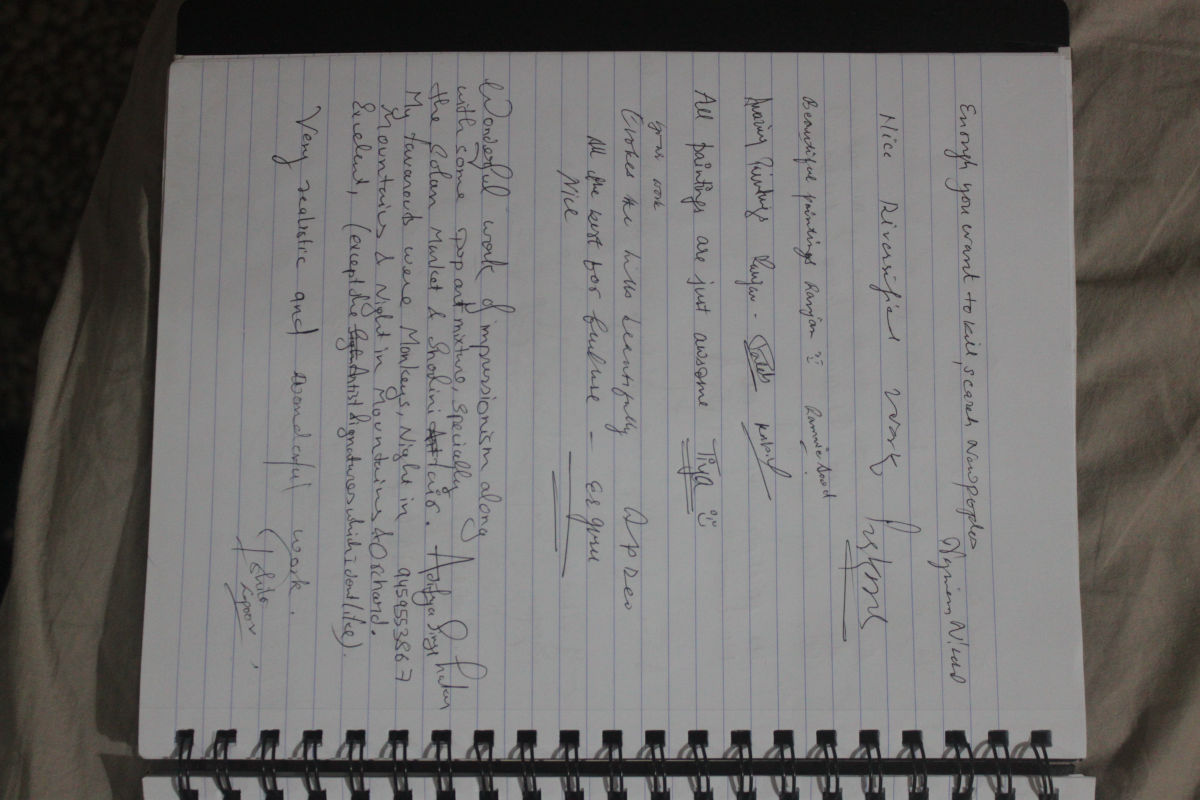 Enough you want to kill, search Newpaples
Nice Diversified Work
Beautiful paintings Ranjan :) Rannie Sood
Amazing Paintings Ranjan - Kabir
All paintings are just awsome Tiya :)
your work
Evokes the hills beautifully
All the best for future -
Nice
Wonderful work of impressionism along
with some pop art mixture, specially
the Solan Market & Shoolini Affair. Aditya Singh
My favarouts were Monkeys, Night in 9459553867
Mountains & Night in Mountains & Orchard.
(except the Signatures which I dont like).
Very realistic and wonderful work.